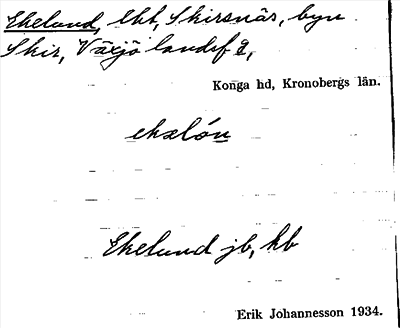 Ekelund, lht, Skirsnäs, byn
Skir, Växjö landsf g,
Konga hd, Kronobergs län.
Ekelund jb, kb
Erik Johannesson 1934.